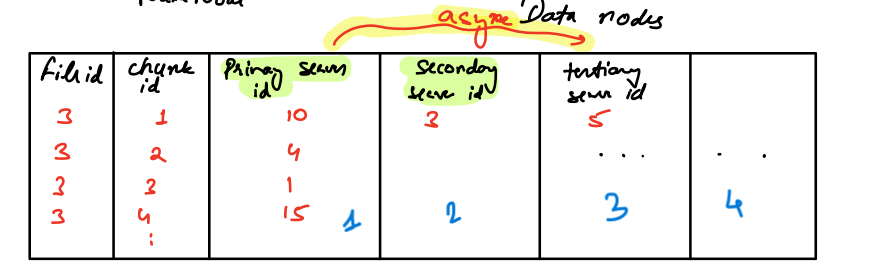 async Data nodes
File id chunk id Primary server id Secondary server id tertiary server id
3 1 10 3 5
3 2 4 ... . .
3 3 1
3 4 15 1 2 3 4
: